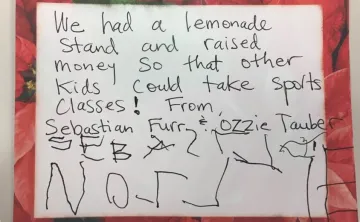 We had a lemonade
stand and raised
money so that other
kids could take sports
classes! From
Sebastian Furr & Ozzie Tauber
SEBA
NO